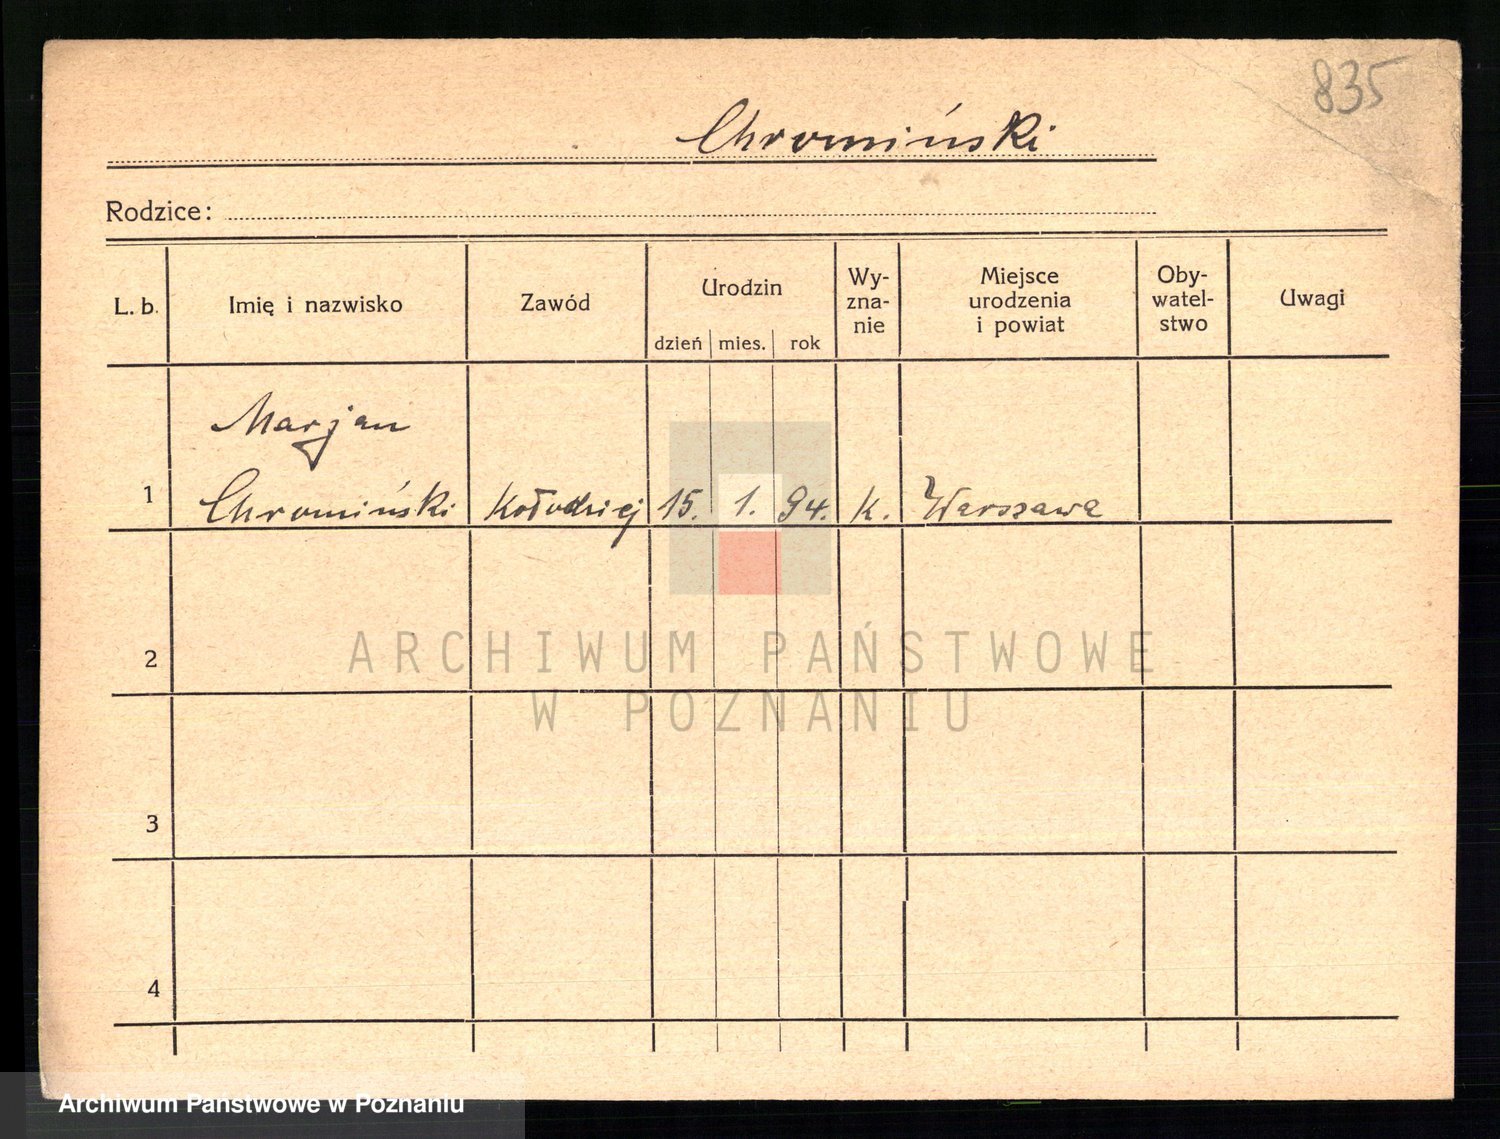 835
Chromiński
Rodzice:
L. b.
Imię i nazwisko
Zawód
Urodzin
dzień
mies.
rok
Wy-
zna-
nie
Miejsce
urodzenia
i powiat
Oby-
watel-
stwo
Uwagi
1
Marjan
Chromiński
Kołodziej
15.
1.
94.
k.
Warszawa
2
3
4
ARCHIWUM PAŃSTWOWE
W POZNANIU
Archiwum Państwowe w Poznaniu